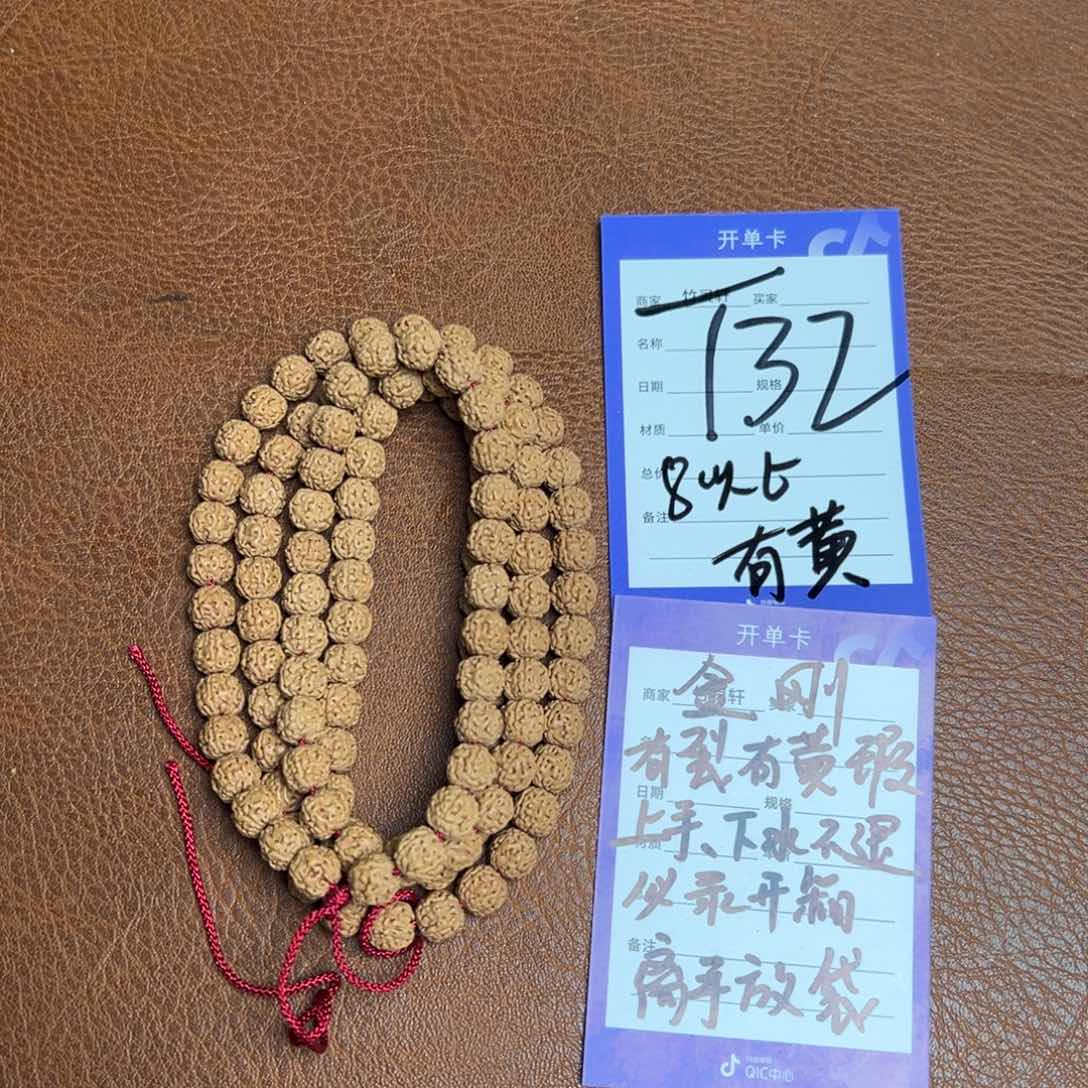 开单卡
商家 竹灵轩 买家
T32
名称
日期 规格
材质 单价
总价
8以上
备注
有黄
开单卡
金刚
商家 轩
有裂有黄瑕
日期 规格
上手、下水不退
必录开箱
备注
离手放袋
QIC中心